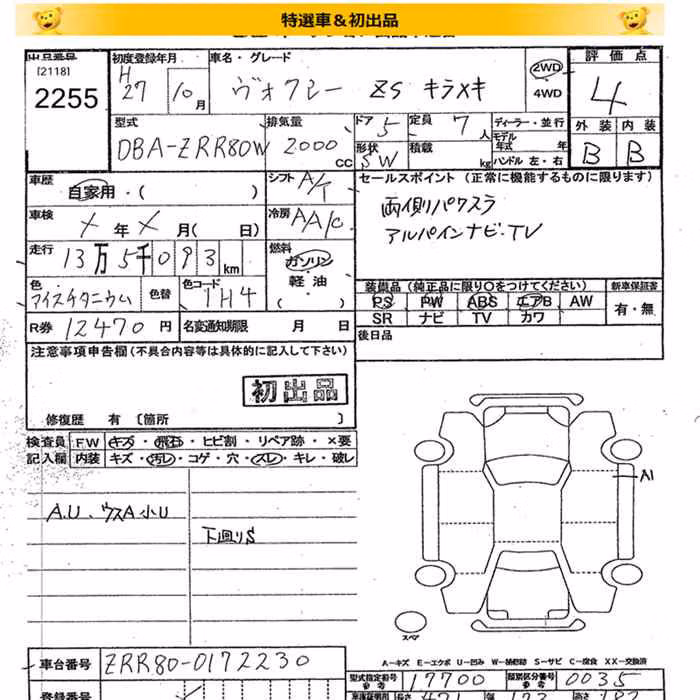 特選車＆初出品
出品番号 初度登録年月 車名・グレード 評価点
[2118] H 2WD
2255 27 10月 ヴォクシー ZS キラメキ 4WD 4
型式 排気量 ドア 5 定員 7人 ディーラー・並行 外装 内装
モデル年式 年
DBA-ZRR80W 2000cc 形状 SW 積載 kg ハンドル 左・右 B B
車歴 自家用・( ) シフト A/T セールスポイント (正常に機能するものに限ります)
車検 メ年メ月( 日) 冷房 AA/C 両側パワスラ
アルパインナビ・TV
走行 13万5千093km 燃料 ガソリン
軽油
( )
色 アイスチタニウム 色替 色コード 1H4 装備品 (純正品に限り○をつけてください) 新車保証書
PS PW ABS エアB AW 有・無
SR ナビ TV カワ
R券 12470円 名変通知期限 月 日 後日品
注意事項申告欄(不具合内容等は具体的に記入して下さい)
初出品
修復歴 有 〔箇所 〕
検査員 FW キズ・飛石・ヒビ割・リペア跡・×要
記入欄 内装 キズ・汚レ・コゲ・穴・スレ・キレ・破レ
A1
A.U、ウスA小U
下廻りS
スペア
A-キズ E-エクボ U-凹み W-補修跡 S-サビ C-腐食 XX-交換済
車台番号 ZRR80-0172230
型式指定番号 参考 17700 類別区分番号 参考 0035
登録番号